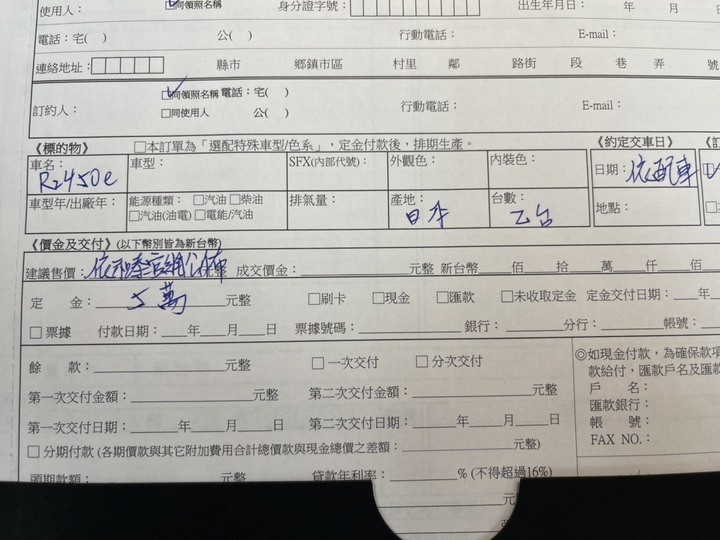 使用人： 同領照名稱 身分證字號： 出生年月日： 年 月 日
電話：宅( ) 公( ) 行動電話： E-mail：
連絡地址： 縣市 鄉鎮市區 村里 鄰 路街 段 巷 弄 號
訂約人： 同領照名稱 電話：宅( )
□同使用人 公( ) 行動電話： E-mail：
《標的物》 □本訂單為「選配特殊車型/色系」，定金付款後，排期生產。 《約定交車日》
車名： 車型： SFX(內部代號)： 外觀色： 內裝色： 日期：依配車
Rz450e
車型年/出廠年： 能源種類： □汽油 □柴油 排氣量： 產地： 台數： 地點：
□汽油(油電) □電能/汽油 日本 乙台
《價金及交付》(以下幣別皆為新台幣)
建議售價：依和泰官網公佈 元整 成交價金： 元整 新台幣 佰 拾 萬 仟 佰
定 金： 5萬 元整 □刷卡 □現金 □匯款 □未收取定金 定金交付日期： 年
□票據 付款日期： 年 月 日 票據號碼： 銀行： 分行： 帳號：
餘 款： 元整 □一次交付 □分次交付
第一次交付金額： 元整 第二次交付金額： 元整
第一次交付日期： 年 月 日 第二次交付日期： 年 月 日
□分期付款 (各期價款與其它附加費用合計總價款與現金總價之差額： 元整)
頭期款額： 貸款年利率： % (不得超過16%)
元
◎如現金付款，為確保款項
款給付，匯款戶名及匯款
戶 名：
匯款銀行：
帳 號：
FAX NO.：